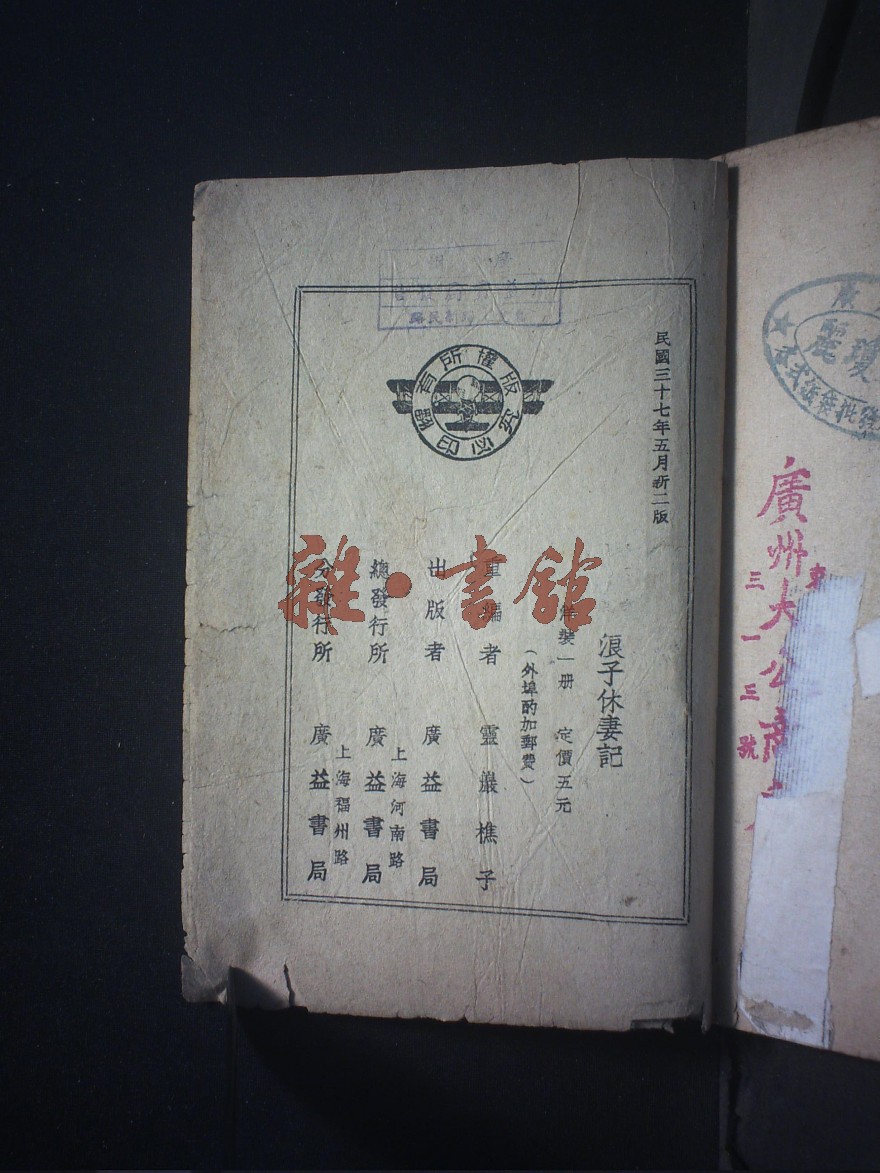 民國三十七年五月新二版
版權所有
翻印必究
浪子休妻記
裝一册 定價五元
(外埠酌加郵費)
重編者 靈巖樵子
出版者 廣益書局
上海河南路
總發行所 廣益書局
上海福州路
分發行所 廣益書局
雜·書館
廣州大公
三一三號
瓊麗